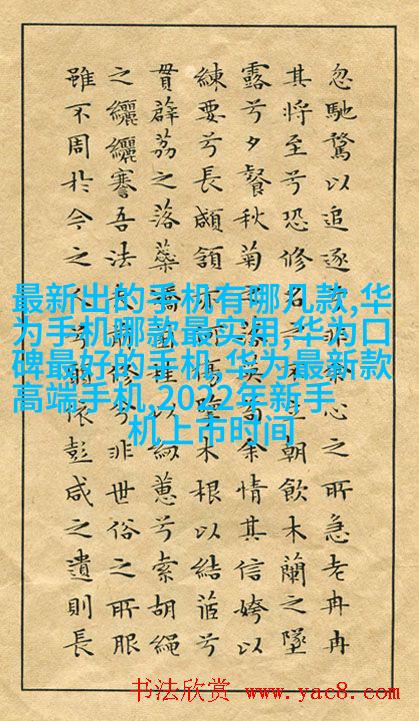 忽馳騖以追逐非心之所急老冉冉
其將至兮恐修名立朝飲木蘭之墜
露兮夕餐秋菊英余情其信姱以
練要兮長顑頷傷木根以結茝兮
貫薜荔之落蘂矯桂以紉蕙兮索胡繩
之纚纚謇吾法修兮非世俗之所服
雖不周於今之人兮依彭咸之遺則長
最新出的手机有哪几款,华
为手机哪款最实用,华为口
碑最好的手机,华为最新款
高端手机,2022年新手
机上市时间
书法欣赏 www.yac8.com